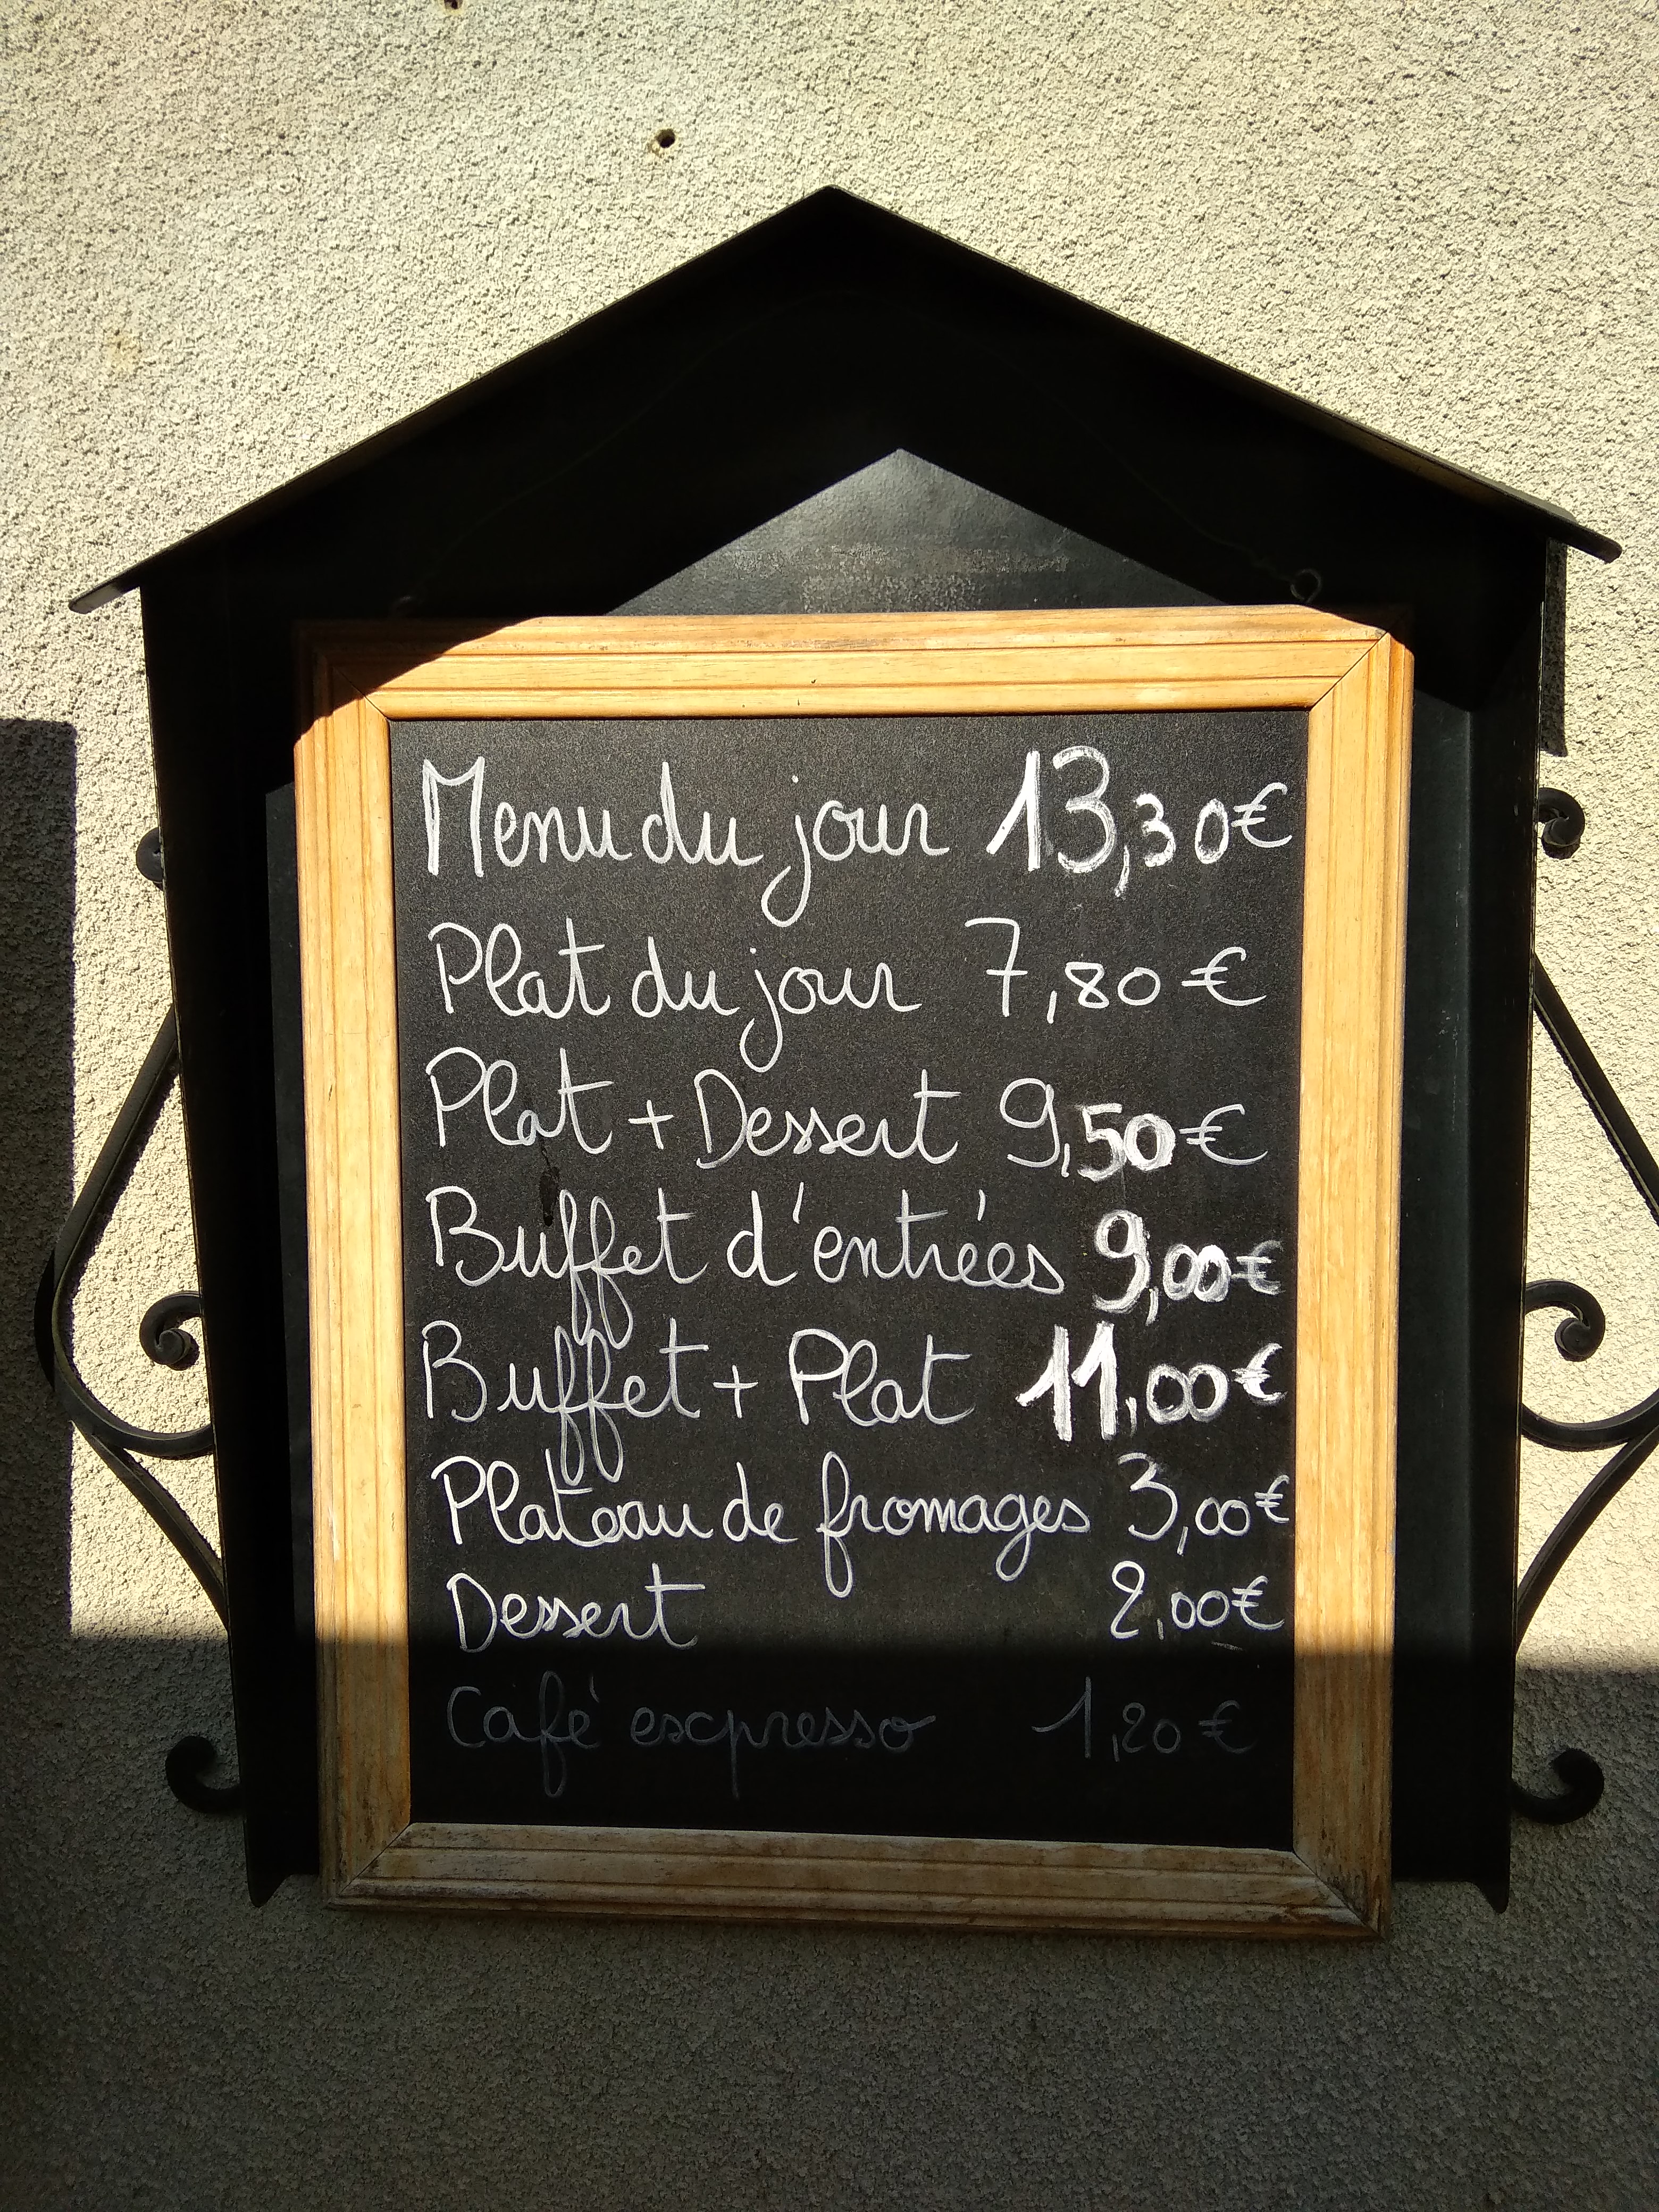 Menu du jour 13,30€
Plat du jour 7,80 €
Plat + Dessert 9,50 €
Buffet d'entrées 9,00€
Buffet + Plat 11,00€
Plateau de fromages 3,00€
Dessert 2,00€
Café expresso 1,20 €